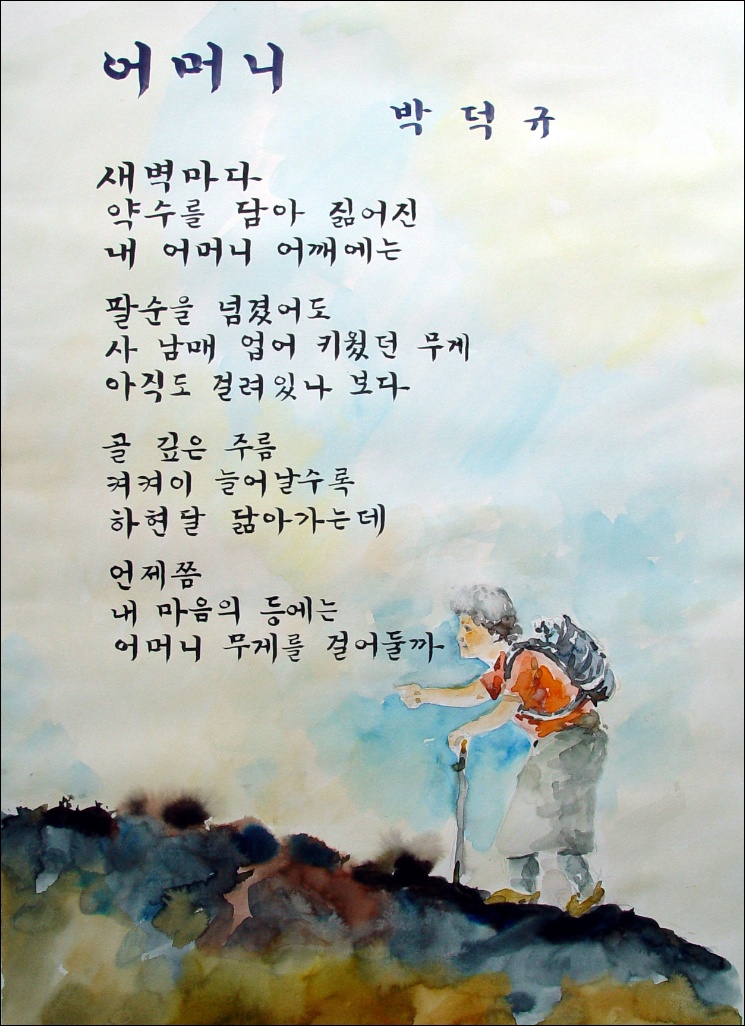 어머니
박덕규
새벽마다
약수를 담아 짊어진
내 어머니 어깨에는
팔순을 넘겼어도
사 남매 업어 키웠던 무게
아직도 걸려있나 보다
골 깊은 주름
켜켜이 늘어날수록
하현달 닮아가는데
언제쯤
내 마음의 등에는
어머니 무게를 걸어둘까